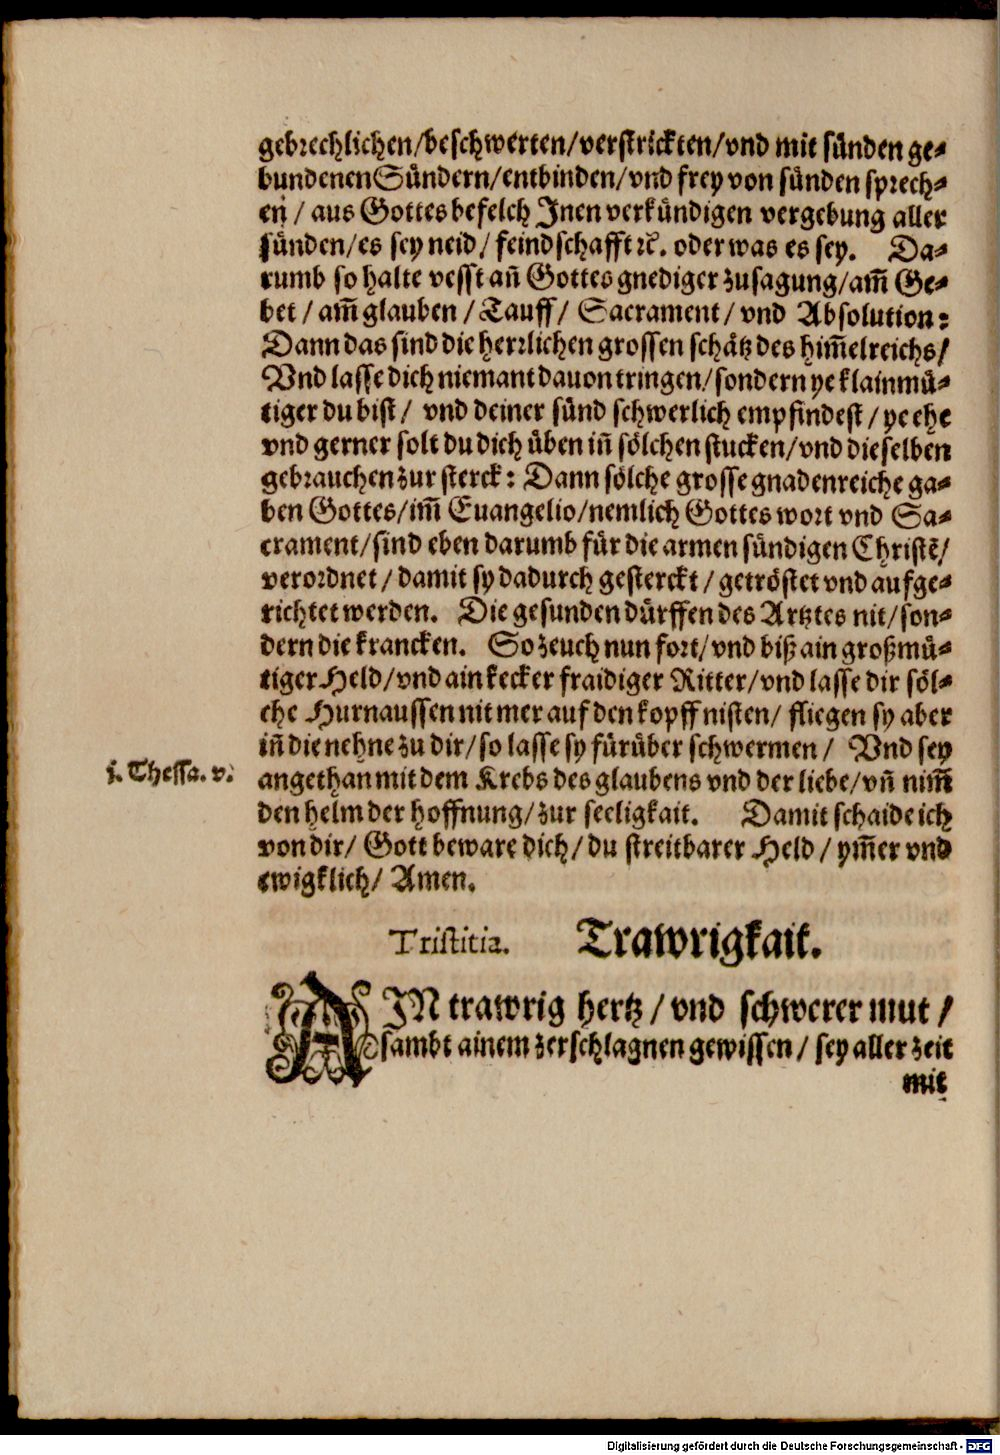 gebrechlichen/beschwerten/verstrickten/vnd mit sünden ge-
bundenen Sündern/entbinden/vnd frey von sünden sprech-
en / aus Gottes befelch Jnen verkündigen vergebung aller
sünden/es sey neid / feindschafft ꝛc. oder was es sey. Da-
rumb so halte vesst an̄ Gottes gnediger zusagung/am̄ Ge-
bet / am̄ glauben / Tauff / Sacrament / vnd Absolution:
Dann das sind die herrlichen grossen schätz des him̄elreichs/
Vnd lasse dich niemant dauon tringen/sondern ye klainmü-
tiger du bist / vnd deiner sünd schwerlich empfindest / ye ehe
vnd gerner solt du dich üben in̄ sölchen stucken/vnd dieselben
gebrauchen zur sterck: Dann sölche grosse gnadenreiche ga-
ben Gottes/im̄ Euangelio/nemlich Gottes wort vnd Sa-
crament/sind eben darumb für die armen sündigen Christē/
verordnet / damit sy dadurch gesterckt / getröstet vnd aufge-
richtet werden. Die gesunden dürffen des Artztes nit/son-
dern die krancken. So zeuch nun fort/vnd biß ain großmü-
tiger Held/vnd ain kecker fraidiger Ritter/vnd lasse dir söl-
che Hurnaussen nit mer auf den kopff nisten/ fliegen sy aber
in̄ die nehne zu dir/so lasse sy fürüber schwermen / Vnd sey
j. Thessa. v.
angethan mit dem Krebs des glaubens vnd der liebe/vn̄ nim̄
den helm der hoffnung/zur seeligkait. Damit schaide ich
von dir/ Gott beware dich/du streitbarer Held / ym̄er vnd
ewigklich/ Amen.
Tristitia. Trawrigkait.
AJN trawrig hertz / vnd schwerer mut /
sambt ainem zerschlagnen gewissen / sey aller zeit
mit
Digitalisierung gefördert durch die Deutsche Forschungsgemeinschaft - DFG